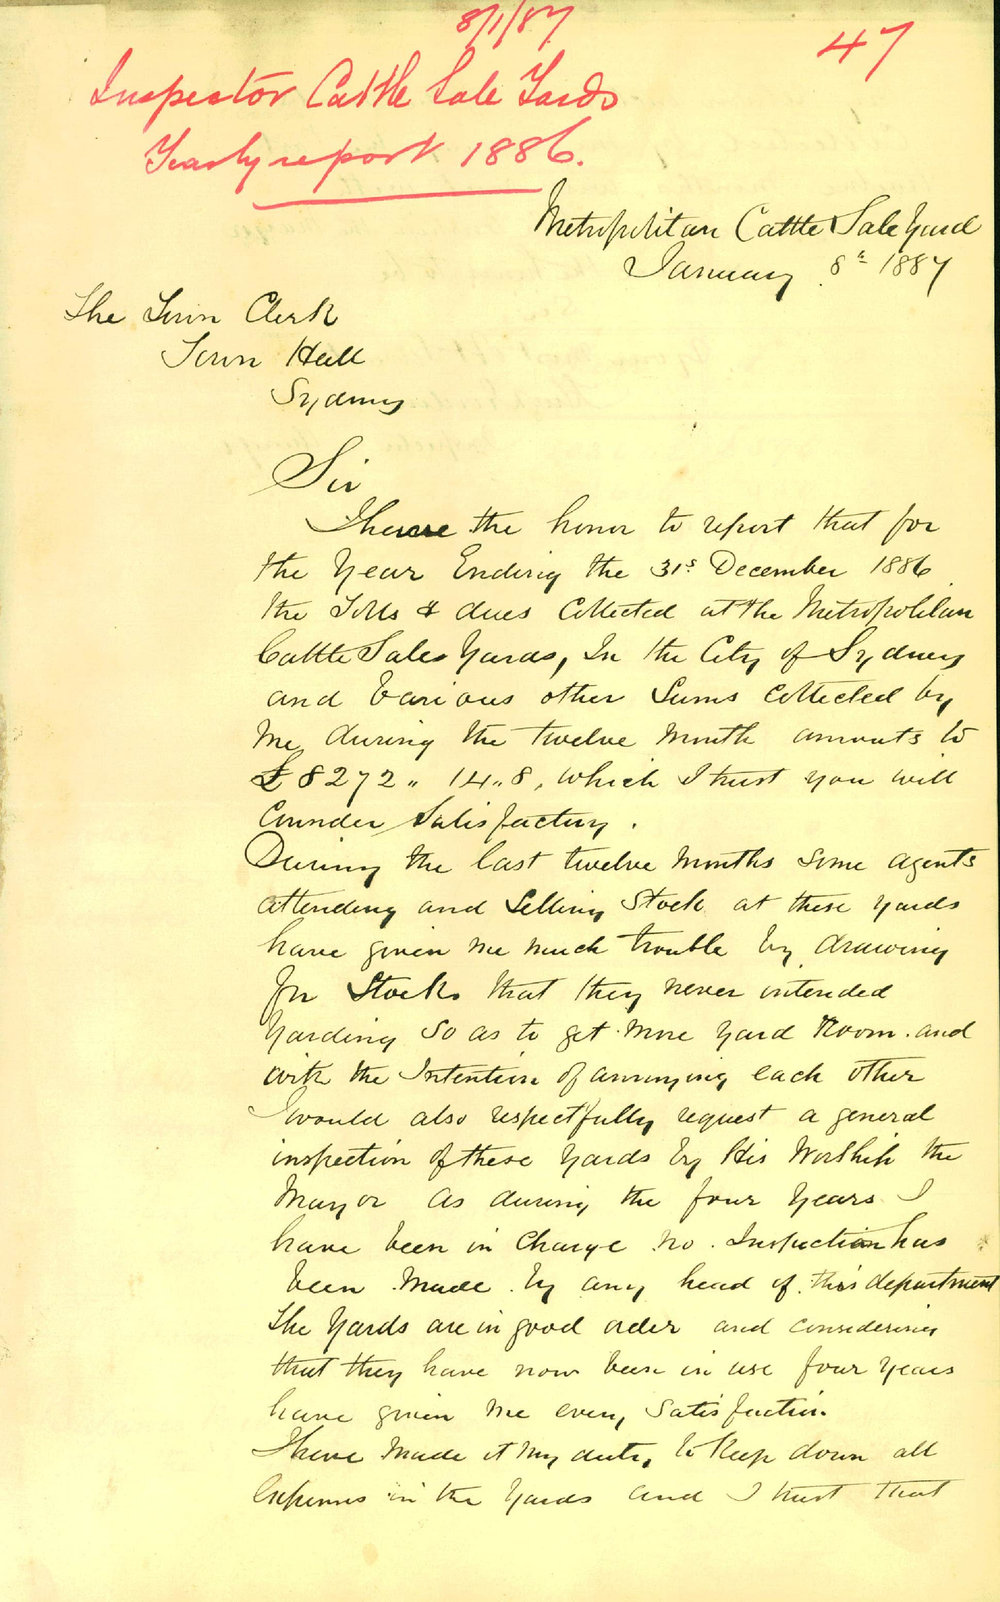 8/1/87
47
Inspector Cattle Sale Yards
Yearly report 1886.
Metropolitan Cattle Sale Yard
January 8th 1887
The Town Clerk
Town Hall
Sydney
Sir
I have the honor to report that for
the Year Ending the 31st December 1886
the Tolls & dues Collected at the Metropolitan
Cattle Sales Yards, In the City of Sydney
and Various other Sums Collected by
Me, during the twelve Month amounts to
£8272 " 14 " 8, which I trust you will
Consider Satisfactory.
During the last twelve Months Some agents
attending and Selling Stock at these yards
have given me much trouble by drawing
for Stock that they never intended
Yarding So as to get More yard Room. and
with the Intention of annoying each other
I would also respectfully request a general
inspection of these Yards by His Worship the
Mayor as during the four Years I
have been in Charge no. Inspection has
been Made by any head of this department
The Yards are in good order and considering
that they have now been in use four years
have given Me every Satisfaction
I have Made it My duty, to Keep down all
Expenses in the Yards and I trust that